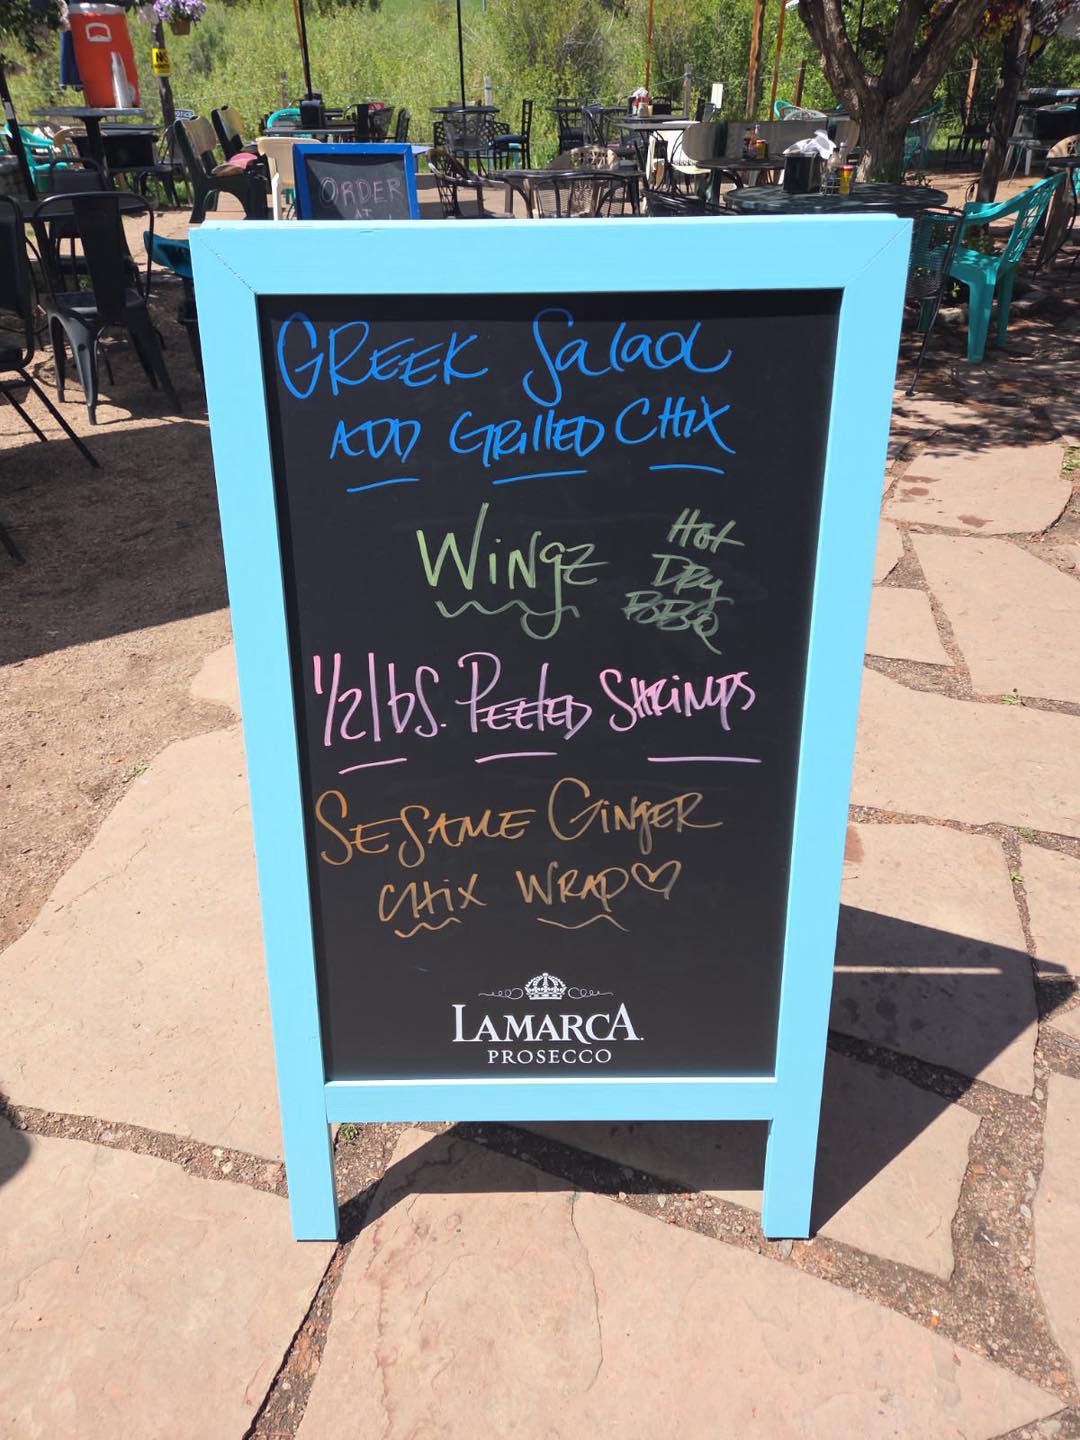 ORDER
AT
GREEK Salad
ADD GRILLED CHIX
WINgz
Hot
DRy
BBQ
1/2 lbs. PEELED SHRIMPS
SESAME GINGER
CHIX WRAP♡
LAMARCA
PROSECCO